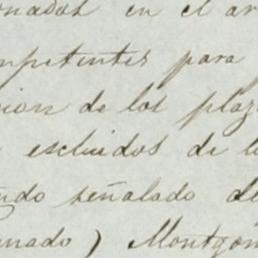 onadas en el ar
mpetentes para
cion de los plaz
escluidos de l
ndo señalado de
rmado) Montgom